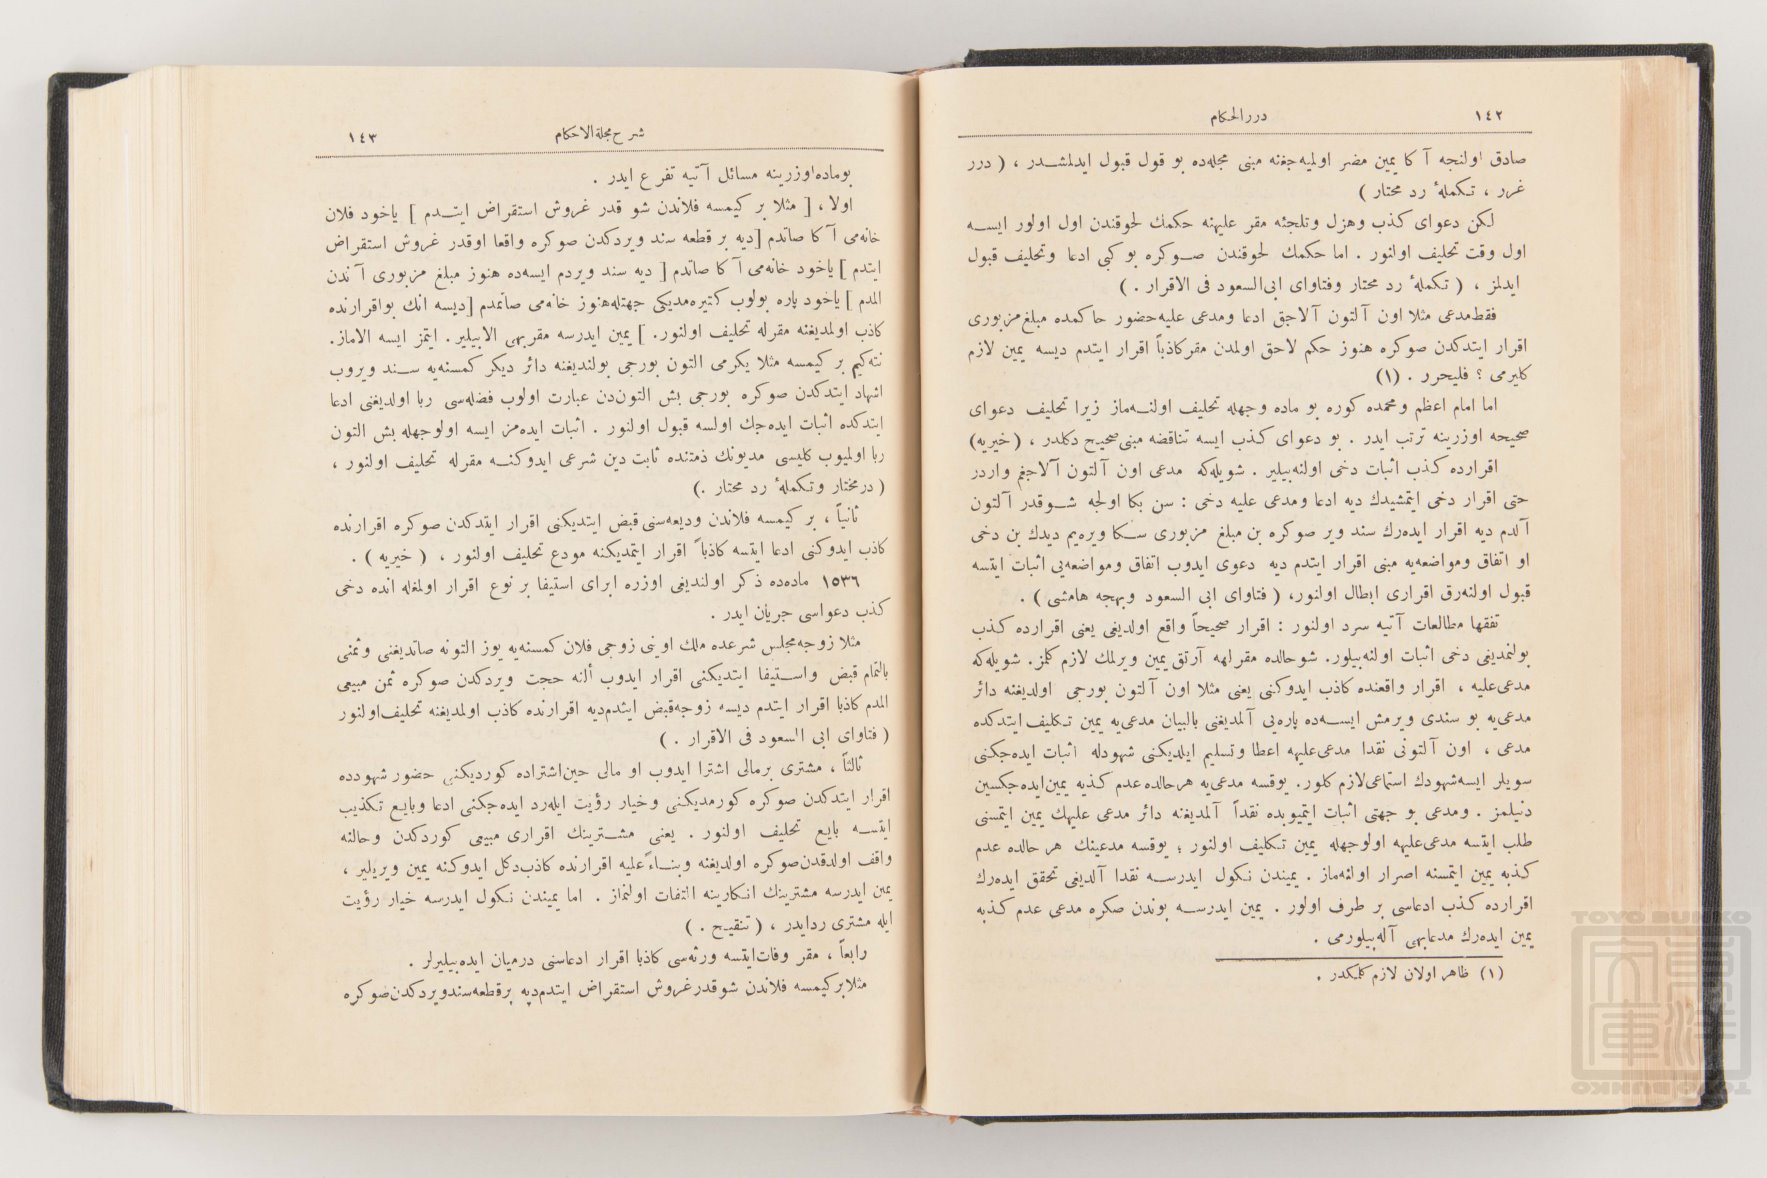 ١٤٢
دررالحكام
صادق اولنجه آ كا يمين مضر اولميه‌جغنه مبنى مجله‌ده بو قول قبول ايدلمشـدر ، ( درر
غرر ، تـكملهٔ رد محتار )
لكن دعواى كـذب وهزل وتلجئه مقر عليهنه حكمك لحوقندن اول اولور ايسـه
اول وقت تحليف اولنور . اما حكمك لحوقندن صـوكره بو كبى ادعا وتحليف قبول
ايدلمز ، ( تـكملهٔ رد محتار وفتاواى ابى‌السعود فى الاقرار . )
فقط‌مدعى مثلا اون آلتون آلاجق ادعا ومدعى عليه‌حضور حاكمده مبلغ‌مزبورى
اقرار ايتدكدن صوكره هنوز حكم لاحق اولمدن مقركاذباً اقرار ايتدم ديسه يمين لازم
كليرمى ؟ فليحرر . (١)
اما امام اعظم ومحمده كوره بو ماده وجهله تحليف اولنـه‌ماز زيرا تحليف دعواى
صحيحه اوزرينه ترتب ايدر . بو دعواى كـذب ايسه تناقضه مبنى‌صحيح دكلدر ، ( خيريه )
اقرارده كـذب اثبات دخى اولنه‌بيلير . شويله‌كه مدعى اون آلتون آلاجغم واردر
حتى اقرار دخى ايتمشيدك ديه ادعا ومدعى عليه دخى : سن بكا اولجه شـوقدر آلتون
آلدم ديه اقرار ايده‌رك سند وير صوكره بن مبلغ مزبورى سـكا ويره‌يم ديدك بن دخى
او اتفاق ومواضعه‌يه مبنى اقرار ايتدم ديه دعوى ايدوب اتفاق ومواضعه‌يى اثبات ايتسه
قبول اولنه‌رق اقرارى ابطال اولنور، ( فتاواى ابى السعود وبهجه هامشى ) .
تفقها مطالعات آتيه سرد اولنور : اقرار صحيحاً واقع اولديغى يعنى اقرارده كـذب
بولنمديغى دخى اثبات اولنه‌بيلور. شو‌حالده مقرلهه آرتق يمين ويرلمك لازم كلمز. شويله‌كه
مدعى‌عليه ، اقرار واقعنده كاذب ايدوكنى يعنى مثلا اون آلتون بورجى اولديغنه دائر
مدعى‌يه بو سندى ويرمش ايسـه‌ده پاره‌يى آلمديغنى بالبيان مدعى‌يه يمين تكليف ايتدكده
مدعى ، اون آلتونى نقدا مدعى‌عليهه اعطا وتسليم ايلديكنى شهودله اثبات ايده‌جكنى
سويلر ايسه‌شهودك استماعى‌لازم كلور. يوقسه مدعى‌يه هرحالده عدم كـذبه يمين‌ايده‌جكسين
دنيلمز . ومدعى بو جهتى اثبات ايتميوبده نقداً آلمديغنه دائر مدعى عليهك يمين ايتمسنى
طلب ايتسه مدعى‌عليهه اولوجهله يمين تـكليف اولنور ؛ يوقسه مدعينك هر حالده عدم
كـذبه يمين ايتمسنه اصرار اولنه‌ماز . يميندن نـكول ايدرسـه نقدا آلديغى تحقق ايده‌رك
اقرارده كـذب ادعاسى بر طرف اولور . يمين ايدرسـه بوندن صكره مدعى عدم كـذبه
يمين ايده‌رك مدعابهى آله‌بيلورمى .
(١) ظاهر اولان لازم كلمكدر .
شرح مجلة الاحكام
١٤٣
بوماده‌اوزرينه مسائل آتيه تفرع ايدر .
اولا ، [ مثلا بر كيمسه فلاندن شو قدر غروش استقراض ايتـدم ] ياخود فلان
خانه‌مى آ كا صاتدم [ديه بر قطعه سند ويردكدن صوكره واقعا اوقدر غروش استقراض
ايتدم ] ياخود خانه‌مى آ كا صاتدم [ ديه سند ويردم ايسه‌ده هنوز مبلغ مزبورى آندن
المدم ] ياخود پاره بولوب كتيره‌مديكى جهتله‌هنوز خانه‌مى صاتمدم [ديسه انك بواقرارنده
كاذب اولمديغنه مقرله تحليف اولنور. ] يمين ايدرسه مقربهى الابيلير. ايتمز ايسه الاماز.
نته‌كيم بر كيمسه مثلا يكرمى التون بورجى بولنديغنه دائر ديكر كمسنه‌يه سـند ويروب
اشهاد ايتدكدن صوكره بورجى بش التون‌دن عبارت اولوب فضله‌سى ربا اولديغنى ادعا
ايتدكده اثبات ايده‌جك اولسه قبول اولنور . اثبات ايده‌مز ايسه اولوجهله بش التون
ربا اولميوب كليسى مديونك ذمتنده ثابت دين شرعى ايدوكنـه مقرله تحليف اولنور ،
( درمختار وتـكملهٔ رد محتار .)
ثانياً ، بر كيمسه فلاندن وديعه‌سنى قبض ايتديكنى اقرار ايتدكدن صوكره اقرارنده
كاذب ايدوكنى ادعا ايتسه كاذباً اقرار ايتمديكنه مودع تحليف اولنور ، ( خيريه ) .
١٥٣٦ ماده‌ده ذكر اولنديغى اوزره ابراى استيفا بر نوع اقرار اولمغله انده دخى
كـذب دعواسى جريان ايدر .
مثلا زوجه‌مجلس شرعده ملك اوينى زوجى فلان كمسنه‌يه يوز التونه صاتديغنى وثمنى
بالتمام قبض واسـتيفا ايتديكنى اقرار ايدوب ألنه حجت ويردكدن صوكره ثمن مبيعى
المدم كاذبا اقرار ايتدم ديسه زوجه‌قبض ايتدم‌ديه اقرارنده كاذب اولمديغنه تحليف‌اولنور
( فتاواى ابى السعود فى الاقرار . )
ثالثاً ، مشترى برمالى اشترا ايدوب او مالى حين‌اشتراده كورديكنى حضور شهودده
اقرار ايتدكدن صوكره كورمديكنى وخيار رؤيت ايله‌رد ايده‌جكنى ادعا وبايع تـكذيب
ايتسـه بايع تحليف اولنور . يعنى مشـترينك اقرارى مبيعى كوردكدن وحالنه
واقف اولدقدن‌صوكره اولديغنه وبنـاءً عليه اقرارنده كاذب‌دكل ايدوكنه يمين ويريلير ،
يمين ايدرسه مشترينك انـكارينه التفات اولنماز . اما يميندن نـكول ايدرسه خيار رؤيت
ايله مشترى ردايدر ، ( تنقيح . )
رابعاً ، مقر وفات‌ايتسه ورثه‌سى كاذبا اقرار ادعاسنى درميان ايده‌بيليرلر .
مثلابركيمسه فلاندن شوقدرغروش استقراض ايتدم‌ديه برقطعه‌سندويردكدن‌صوكره
TOYO BUNKO